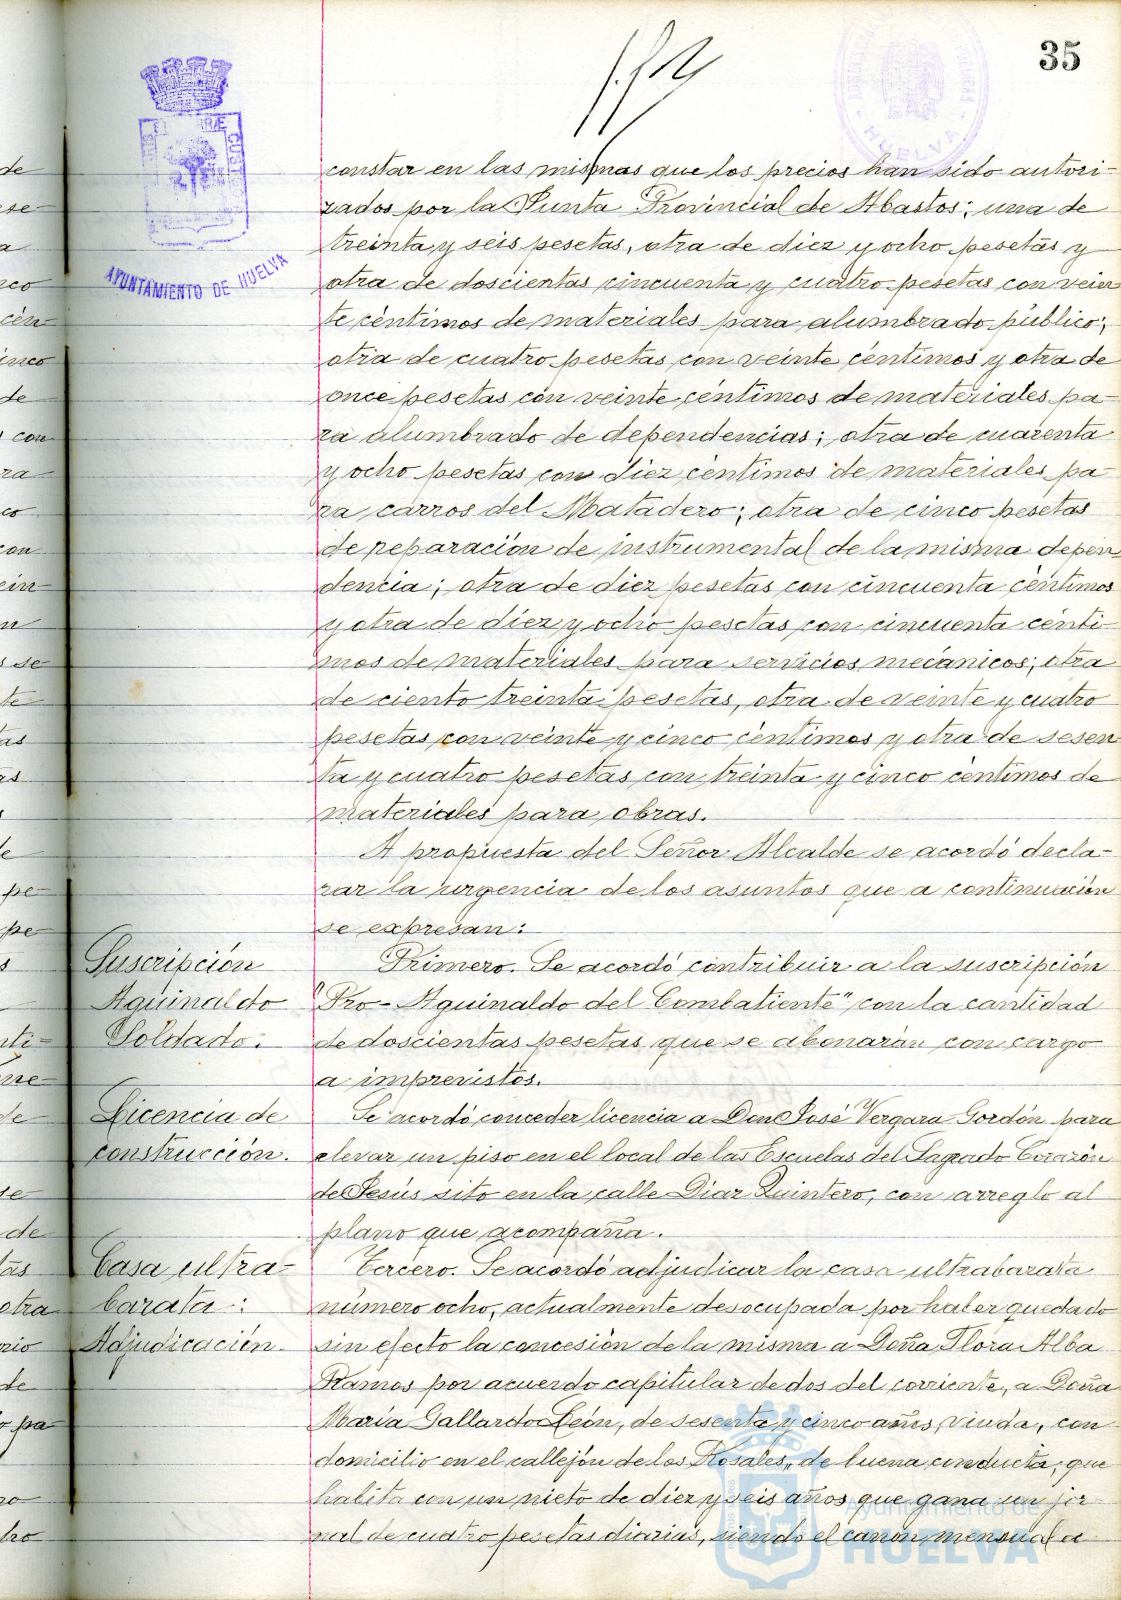 35
HUELVA
AYUNTAMIENTO DE HUELVA
constar en las mismas que los precios han sido autori-
zados por la Junta Provincial de Abastos; una de
treinta y seis pesetas, otra de diez y ocho pesetas y
otra de doscientas cincuenta y cuatro pesetas con vein
te céntimos de materiales para alumbrado público;
otra de cuatro pesetas con veinte céntimos y otra de
once pesetas con veinte céntimos de materiales pa-
ra alumbrado de dependencias; otra de cuarenta
y ocho pesetas con diez céntimos de materiales pa-
ra carros del Matadero; otra de cinco pesetas
de reparación de instrumental de la misma depen
dencia; otra de diez pesetas con cincuenta céntimos
y otra de diez y ocho pesetas con cincuenta cénti-
mos de materiales para servicios mecánicos; otra
de ciento treinta pesetas, otra de veinte y cuatro
pesetas con veinte y cinco céntimos y otra de sesen
ta y cuatro pesetas con treinta y cinco céntimos de
materiales para obras.
A propuesta del Señor Alcalde se acordó decla-
rar la urgencia de los asuntos que a continuación
se expresan:
Suscripción
Aguinaldo
Soldado.
Primero. Se acordó contribuir a la suscripción
"Pro-Aguinaldo del Combatiente" con la cantidad
de doscientas pesetas que se abonarán con cargo
a imprevistos.
Licencia de
construcción.
Se acordó conceder licencia a Don José Vergara Gordón para
elevar un piso en el local de las Escuelas del Sagrado Corazón
de Jesús sito en la calle Díaz Quintero, con arreglo al
plano que acompaña.
Casa ultra-
barata:
Adjudicación
Tercero. Se acordó adjudicar la casa ultrabarata
número ocho, actualmente desocupada por haber quedado
sin efecto la concesión de la misma a Doña Flora Alba
Ramos por acuerdo capitular de dos del corriente, a Doña
María Gallardo León, de sesenta y cinco años, viuda, con
domicilio en el callejón de los Rosales, de buena conducta, que
habita con un nieto de diez y seis años que gana un jor
nal de cuatro pesetas diarias, siendo el canon mensual a
Ayuntamiento de
HUELVA